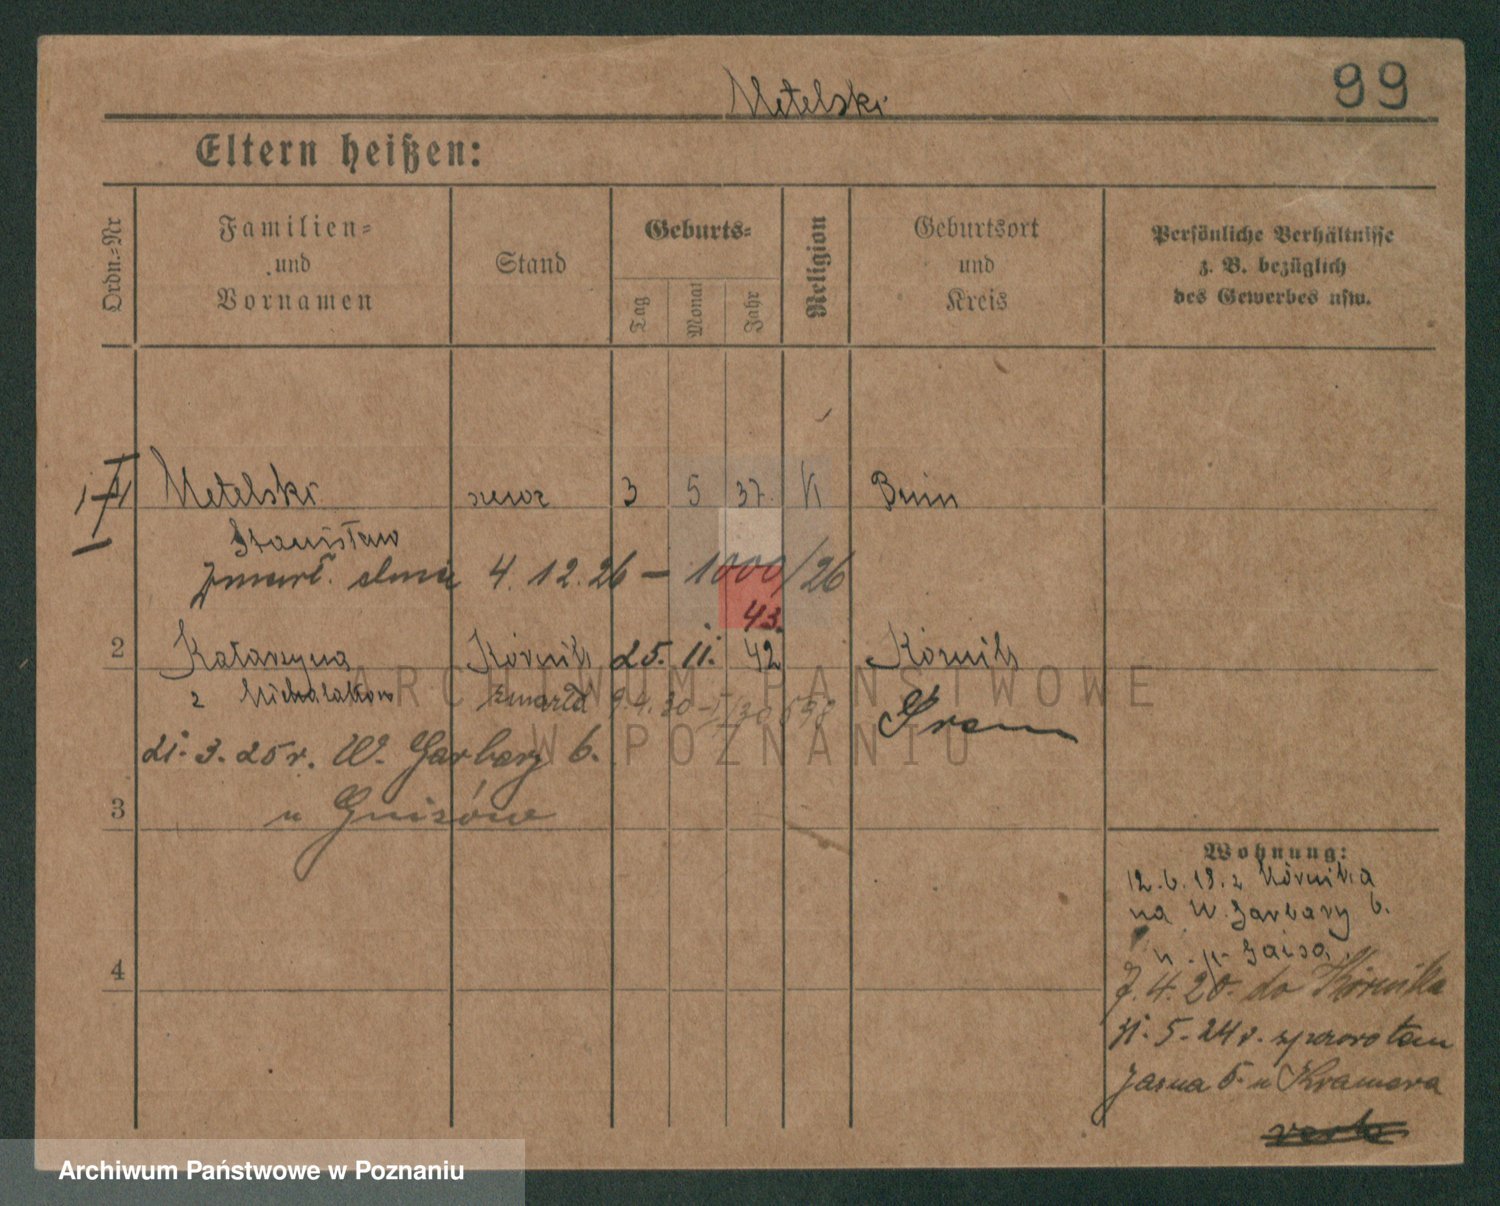 Metelski
99
Eltern heißen:
Ordn.-Nr
Familien-
und
Vornamen
Stand
Geburts-
Tag
Monat
Jahr
Religion
Geburtsort
und
Kreis
Persönliche Verhältnisse
z. B. bezüglich
des Gewerbes usw.
Metelski szewc 3 5 37. K Bnin
Stanisław
zmarł. dnia 4. 12. 26 – 1000/26
43.
2 Katarzyna Kórnik 25. 11. 42 Kórnik
z Michalaków zmarła 9. 4. 30 Śrem
21. 3. 25 r. W. Garbary 6.
3 u
4
Wohnung:
12. 6. 18. z Kórnika
na W. Garbary 6.
u p.
7. 4. 20. do Kórnika
31. 5. 24 r. z powrotem
Jasna 5 u Kramera
ARCHIWUM PAŃSTWOWE
W POZNANIU
Archiwum Państwowe w Poznaniu